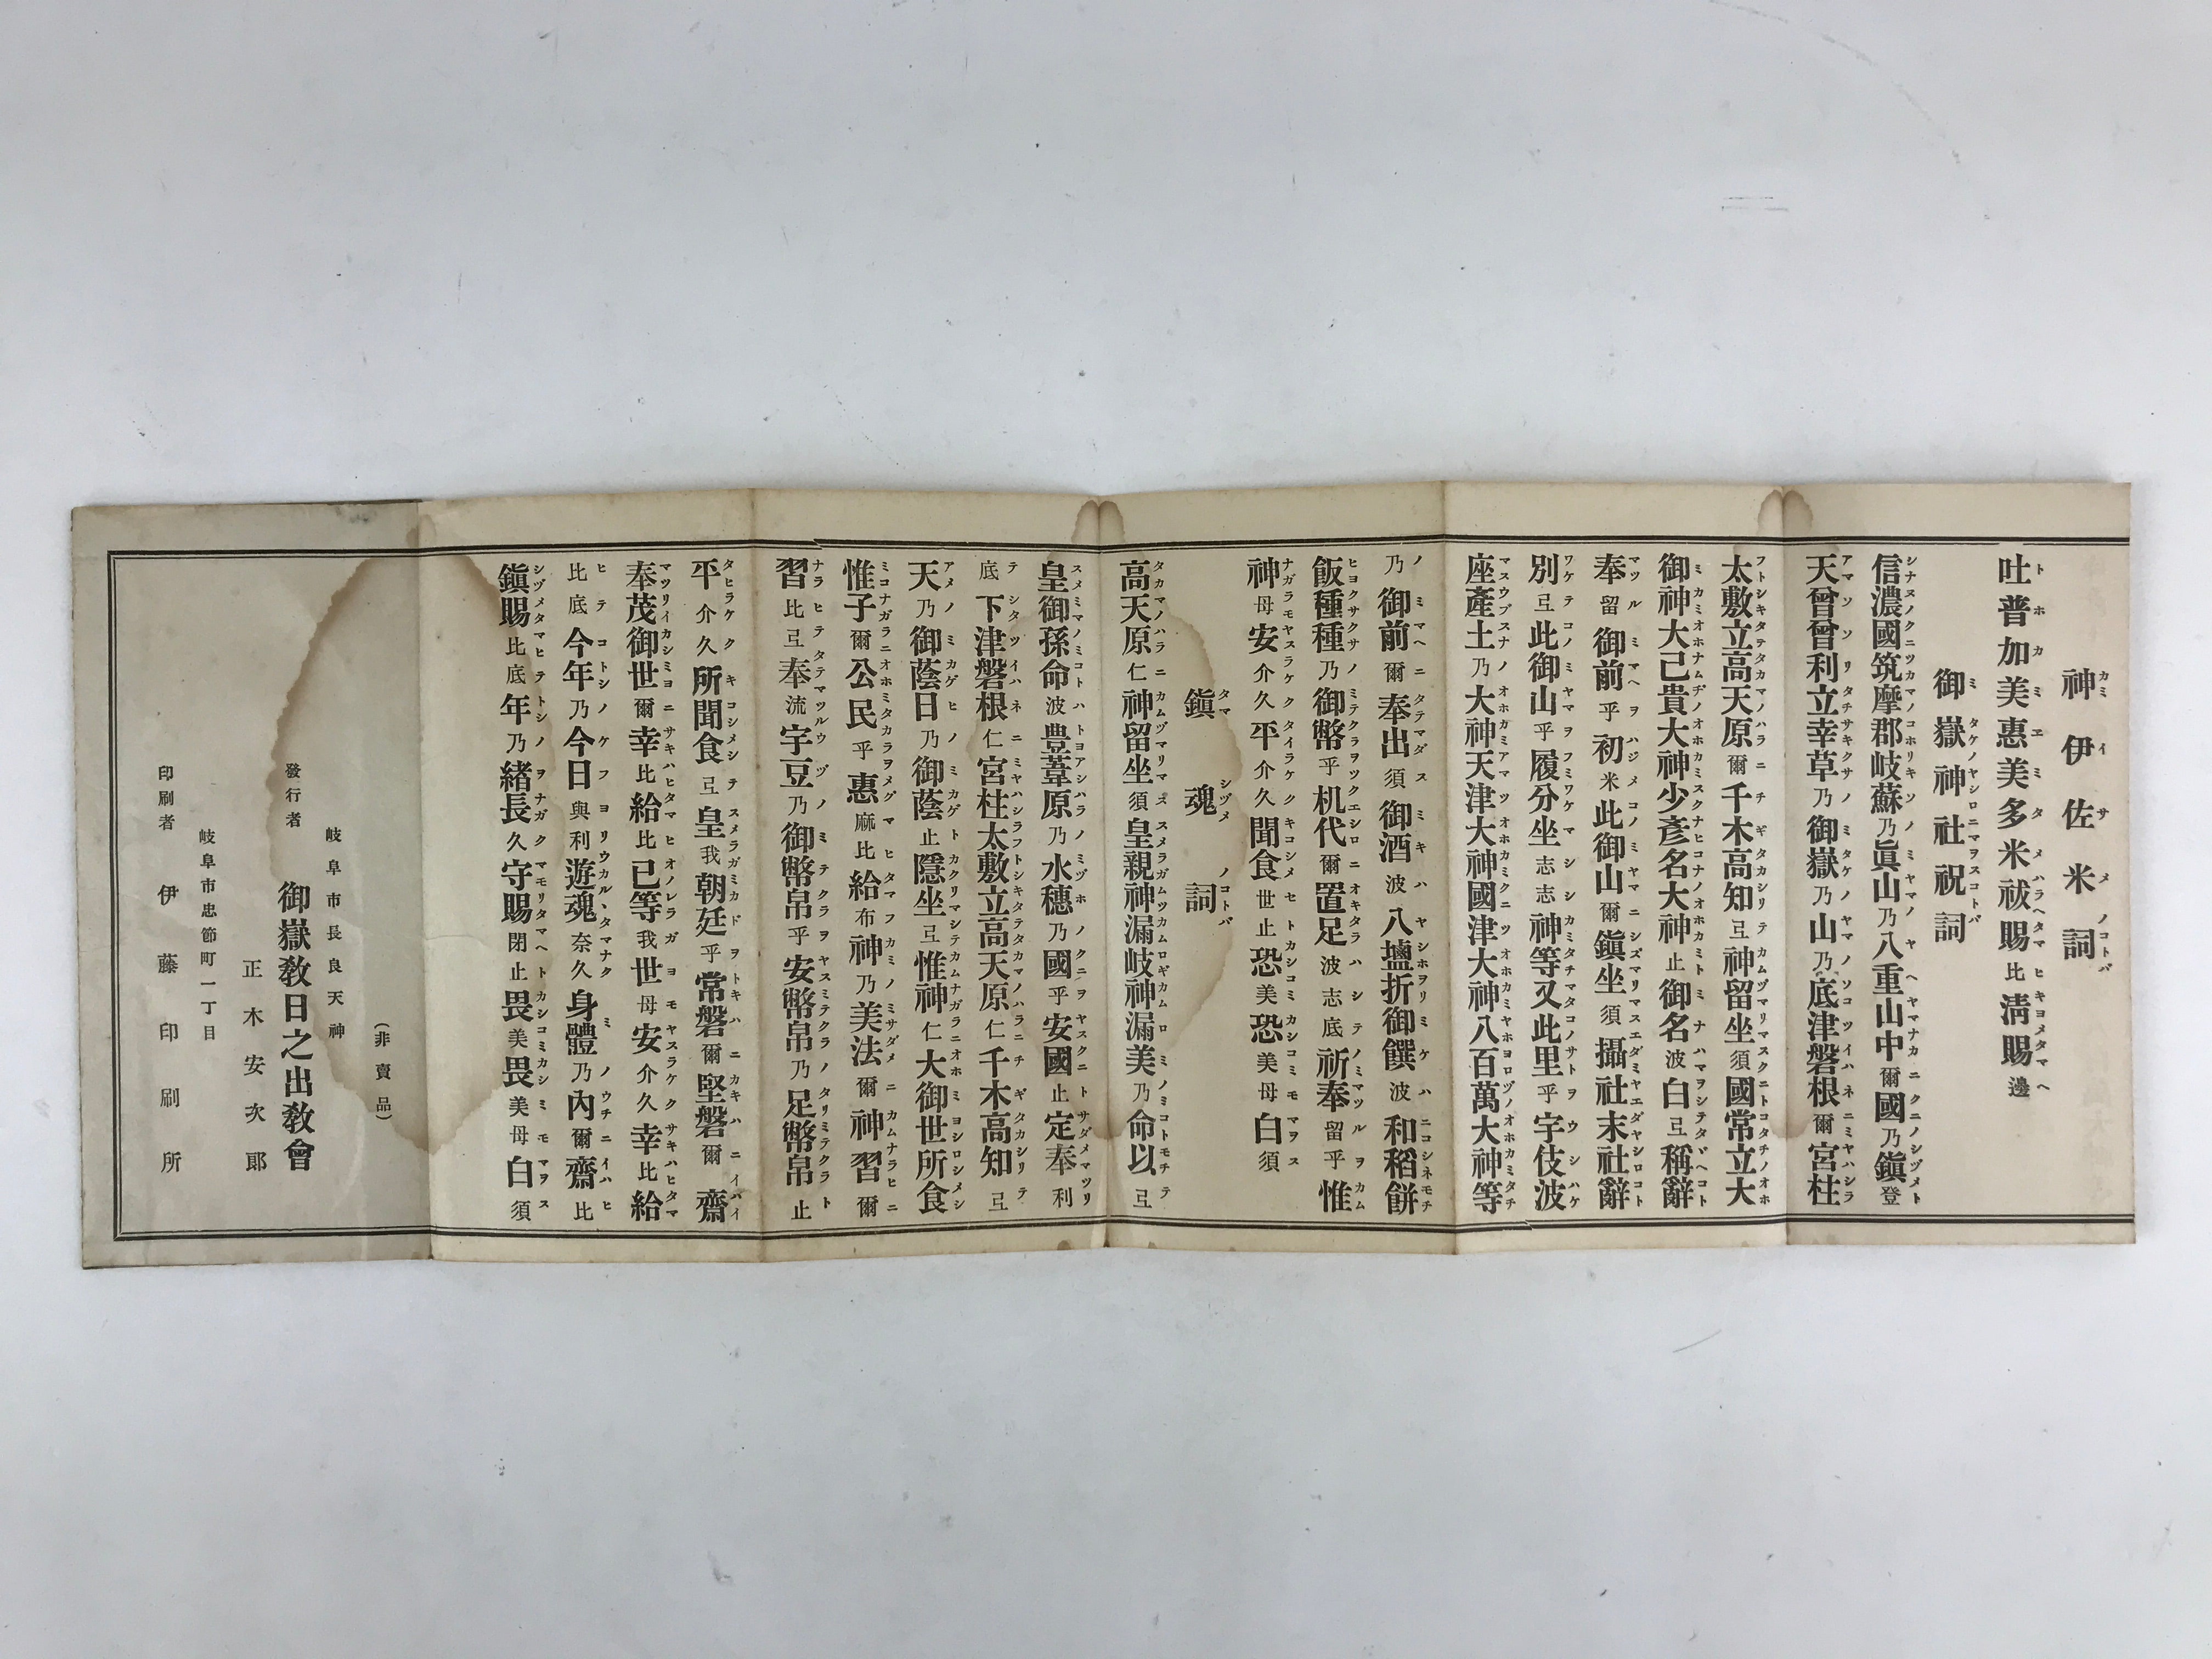 神伊佐米詞
吐普加美惠美多米祓賜比淸賜邊
御嶽神社祝詞
信濃國筑摩郡岐蘇乃眞山乃八重山中爾國乃鎭登
天曾曾利立幸草乃御嶽乃山乃底津磐根爾宮柱
太敷立高天原爾千木高知弖神留坐須國常立大
御神大己貴大神少彥名大神止御名波白弖稱辭
奉留御前乎初米此御山爾鎭坐須攝社末社辭
別弖此御山乎履分坐志志神等又此里乎宇伎波
座產土乃大神天津大神國津大神八百萬大神等
乃御前爾奉出須御酒波八鹽折御饌波和稻餅
飯種種乃御幣乎机代爾置足波志底祈奉留乎惟
神母安介久平介久聞食世止恐美恐美母白須
鎭魂詞
高天原仁神留坐須皇親神漏岐神漏美乃命以弖
皇御孫命波豊葦原乃水穗乃國乎安國止定奉利
底下津磐根仁宮柱太敷立高天原仁千木高知弖
天乃御蔭日乃御蔭止隱坐弖惟神仁大御世所食
惟子爾公民乎惠麻比給布神乃美法爾神習爾
習比弖奉流宇豆乃御幣帛乎安幣帛乃足幣帛止
平介久所聞食弖皇我朝廷乎常磐爾堅磐爾齋
奉茂御世爾幸比給比已等我世母安介久幸比給
比底今年乃今日與利遊魂奈久身體乃內爾齋比
鎭賜比底年乃緒長久守賜閉止畏美畏美母白須
(非賣品)
岐阜市長良天神
發行者 御嶽敎日之出敎會
正木安次郞
岐阜市忠節町一丁目
印刷者 伊藤印刷所